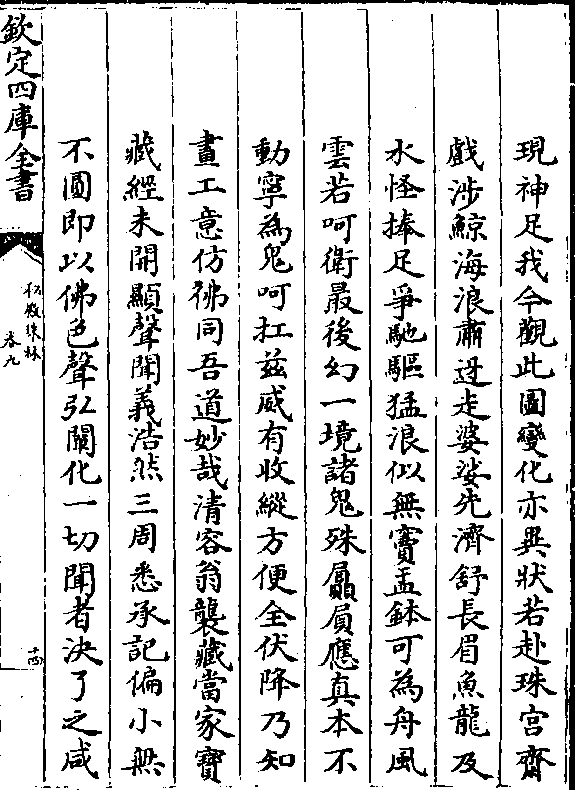 現神足我今觀此圖變化亦異狀若赴珠宮齋
戲涉鯨海浪肅迓走婆娑先濟舒長眉魚龍及
水怪捧足爭馳驅猛浪似無盂鉢可為舟風
雲若呵衛最後幻一境諸鬼殊贔屓應真本不
動寧為鬼呵扛茲威有收縱方便全伏降乃知
畫工意仿彿同吾道妙哉清容翁襲藏當家寶
藏經未開顯聲聞義浩然三周悉承記偏小無
不圓即以佛色聲弘闡化一切聞者決了之咸
欽定四庫全書
秘殿珠林
卷九
十四